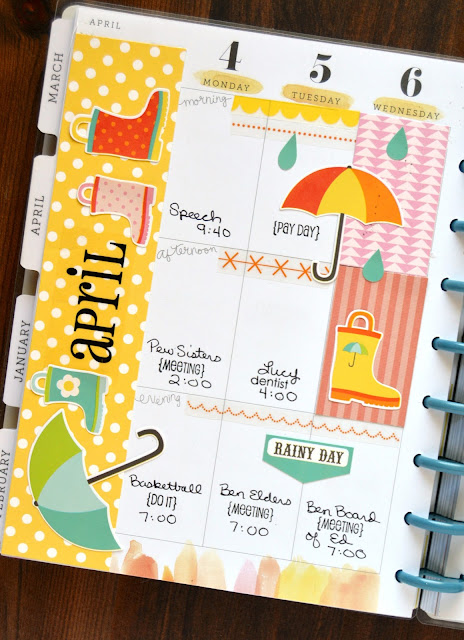 APRIL
4
MONDAY
5
TUESDAY
6
WEDNESDAY
MARCH
APRIL
JANUARY
FEBRUARY
april
morning
Speech
9:40
{PAY DAY}
afternoon
Pew Sisters
{MEETING}
2:00
Lucy
dentist
4:00
evening
RAINY DAY
Basketball
{DO IT}
7:00
Ben Elders
{MEETING}
7:00
Ben Board
{MEETING}
of Ed
7:00